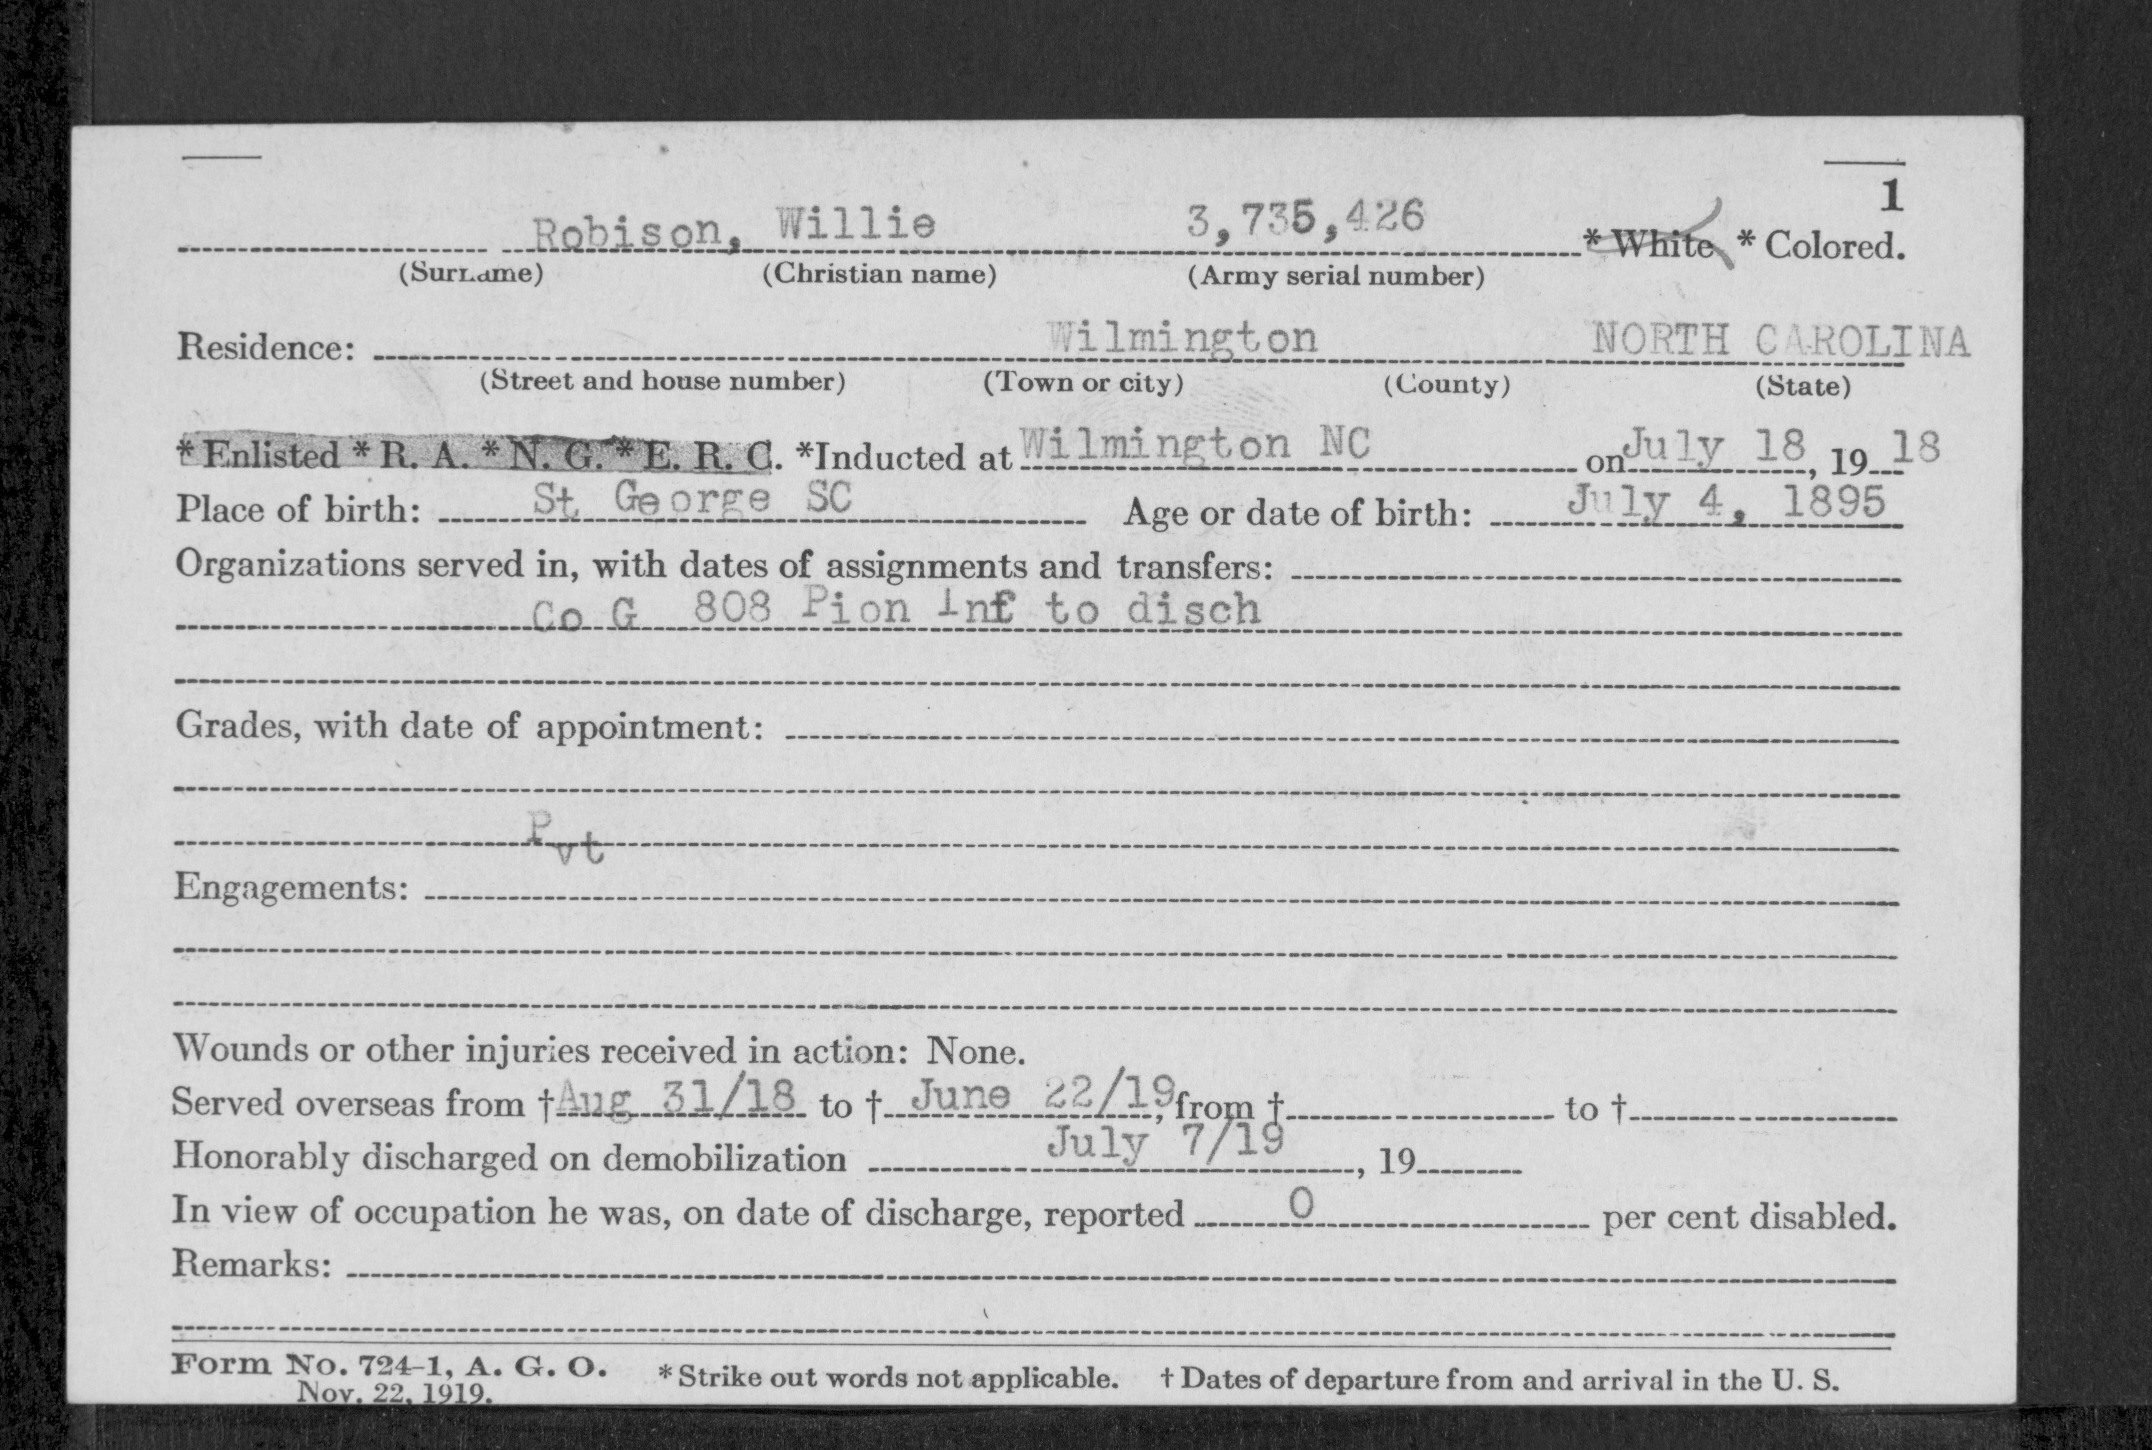 1
Robison, Willie 3,735,426 * White * Colored.
(Surname) (Christian name) (Army serial number)
Residence: Wilmington NORTH CAROLINA
(Street and house number) (Town or city) (County) (State)
* Enlisted * R. A. * N. G. * E. R. C. *Inducted at Wilmington NC on July 18, 19 18
Place of birth: St George SC Age or date of birth: July 4, 1895
Organizations served in, with dates of assignments and transfers:
Co G 808 Pion Inf to disch
Grades, with date of appointment:
Pvt
Engagements:
Wounds or other injuries received in action: None.
Served overseas from † Aug 31/18 to † June 22/19, from † to †
Honorably discharged on demobilization July 7/19, 19
In view of occupation he was, on date of discharge, reported 0 per cent disabled.
Remarks:
Form No. 724-1, A. G. O. * Strike out words not applicable. † Dates of departure from and arrival in the U. S.
Nov. 22, 1919.